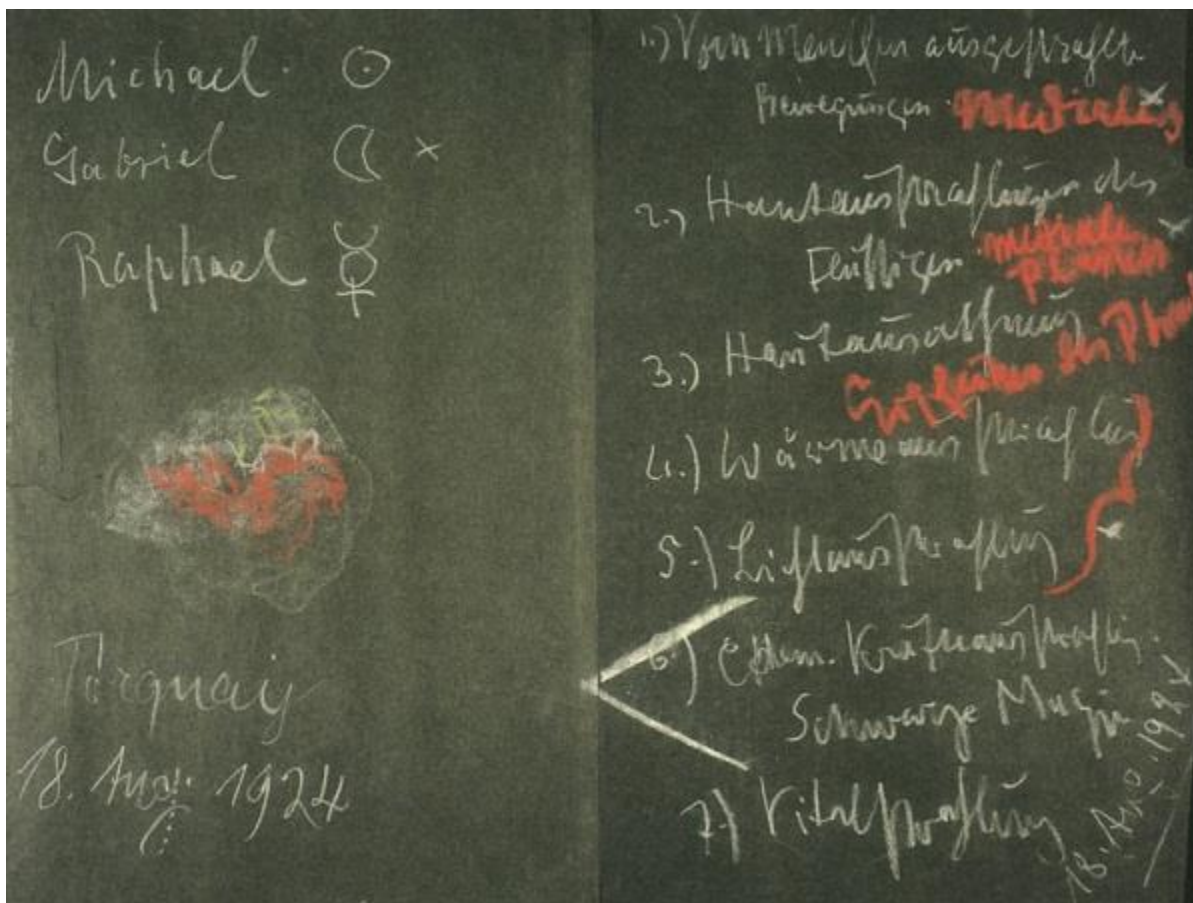 Michael. ☉
Gabriel ☾ ×
Raphael ☿
Torquay
18. Aug. 1924
1.) Vom Menschen ausgestrahlte
Bewegungen. Mediales
2.) Hautausstrahlungen des
Flüssigen.
3.) Hautausatmung
4.) Wärmeausstrahlung
5.) Lichtausstrahlung
6.) Chem. Kräfteausstrahlung.
Schwarze Magie
7.) Vitalstrahlung
18. Aug. 1924